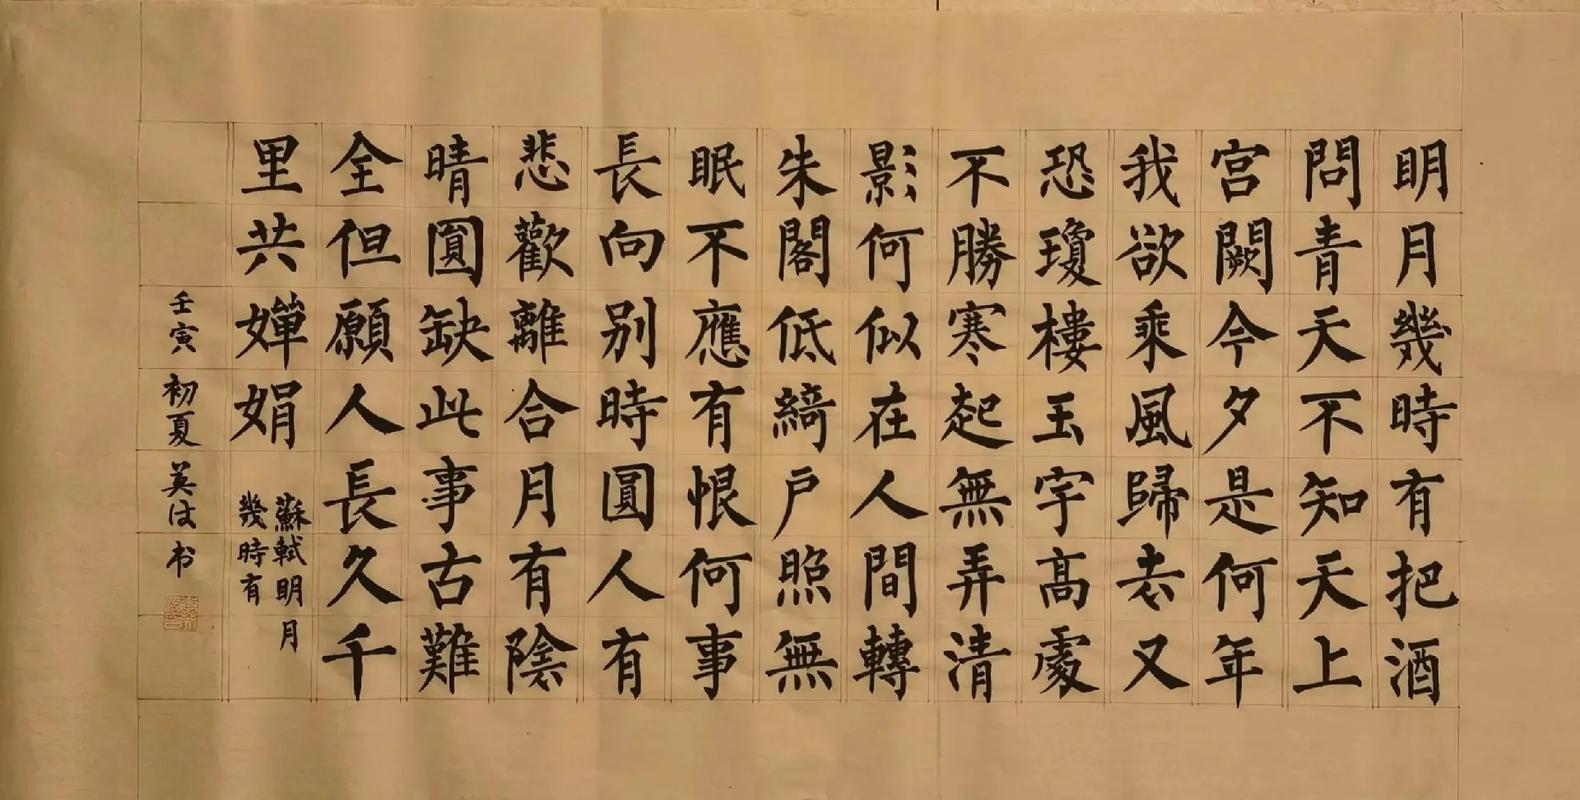 明月幾時有把酒
問青天不知天上
宮闕今夕是何年
我欲乘風歸去又
恐瓊樓玉宇高處
不勝寒起無弄清
影何似在人間轉
朱閣低綺户照無
眠不應有恨何事
長向别時圓人有
悲歡離合月有陰
晴圓缺此事古難
全但願人長久千
里共嬋娟
蘇軾明月
幾時有
壬寅初夏英书